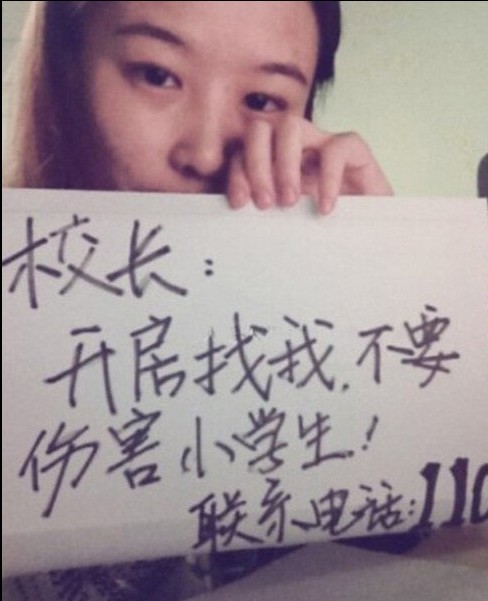 校长:
开房找我,不要
伤害小学生!
联系电话:110